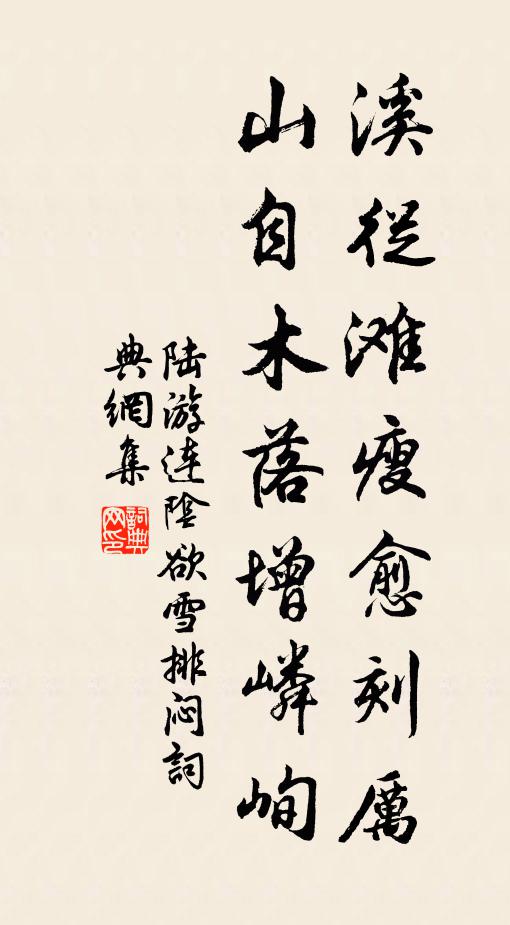 溪從滩瘦愈刻厲
山自木落增嶙峋
陆游连陰欲雪排闷詞
典網集
詞典
网印